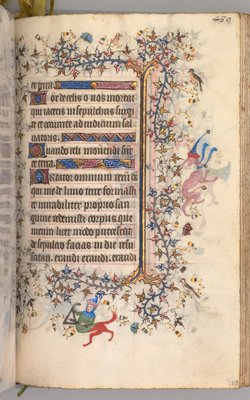 452
et pira
Vor de celis o uos mortui
qui iacetis in sepulchris surgi
te et occurrite ad iudicium sal
uatoris.
Quando celi mouendi sunt
et terra.
Creator omnium rerum deus
qui me de limo terre formasti
et mirabiliter proprio san
guine redemisti corpus que
meum licet modo putrescat
de sepulcro facias in die resu
scitari. exaudi exaudi. exaudi